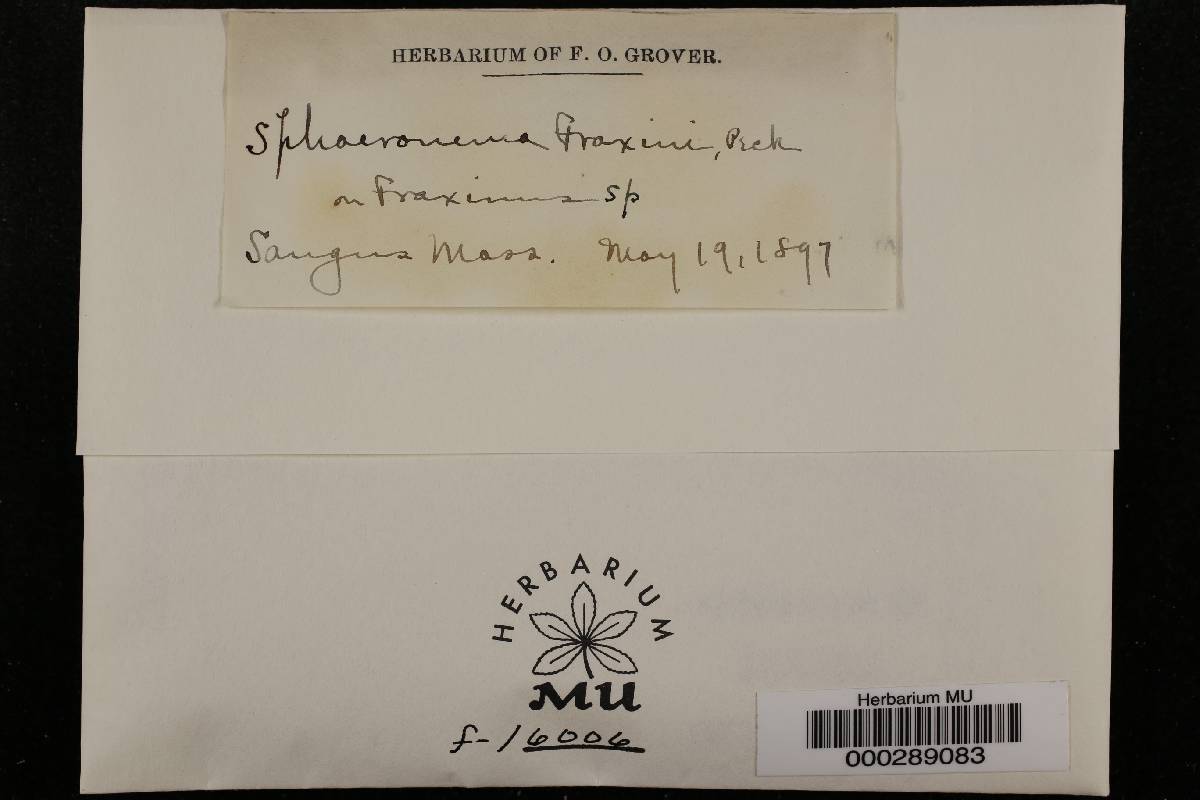 HERBARIUM OF F. O. GROVER.
Sphaeronema Fraxini, Peck
on Fraxinus sp
Saugus Mass. May 19, 1897
HERBARIUM
MU
f-16006
Herbarium MU
000289083